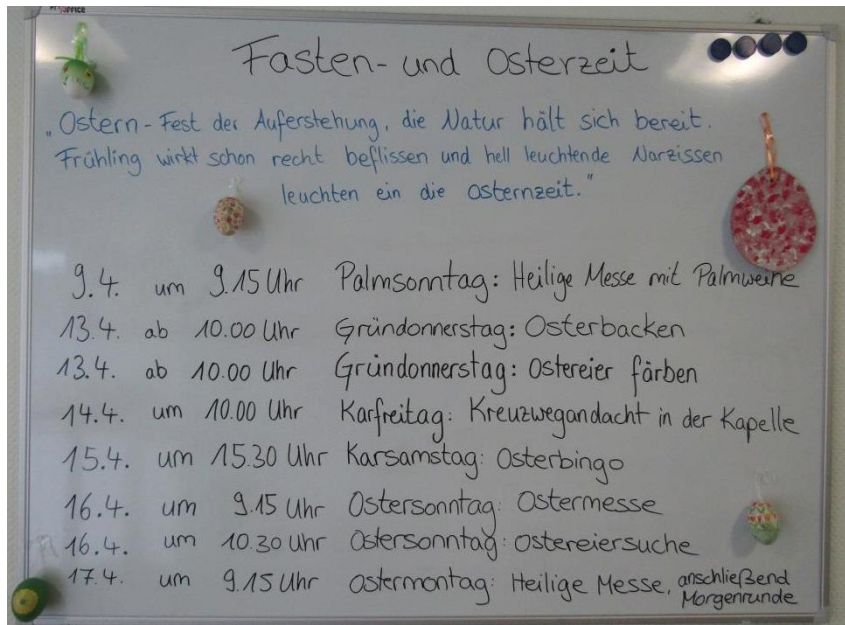 Fasten- und Osterzeit
„Ostern - Fest der Auferstehung, die Natur hält sich bereit.
Frühling wirkt schon recht beflissen und hell leuchtende Narzissen
leuchten ein die Osternzeit."
9.4. um 9.15 Uhr Palmsonntag: Heilige Messe mit Palmweihe
13.4. ab 10.00 Uhr Gründonnerstag: Osterbacken
13.4. ab 10.00 Uhr Gründonnerstag: Ostereier färben
14.4. um 10.00 Uhr Karfreitag: Kreuzwegandacht in der Kapelle
15.4. um 15.30 Uhr Karsamstag: Osterbingo
16.4. um 9.15 Uhr Ostersonntag: Ostermesse
16.4. um 10.30 Uhr Ostersonntag: Ostereiersuche
17.4. um 9.15 Uhr Ostermontag: Heilige Messe, anschließend
Morgenrunde